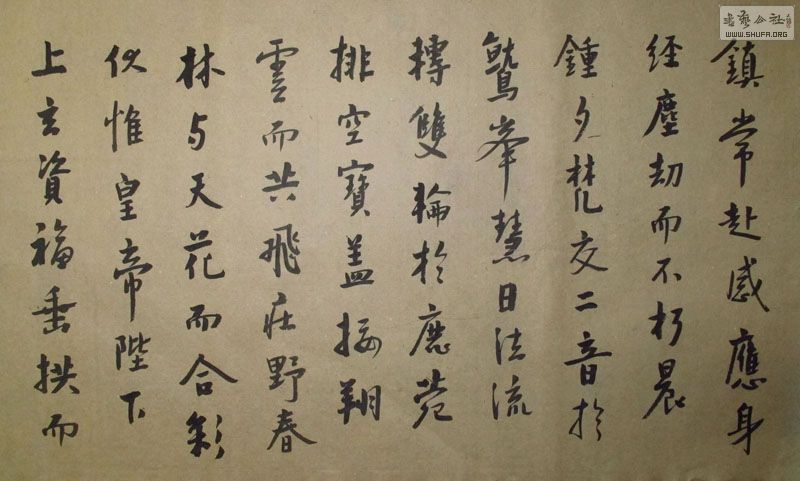 鎮常赴感應身
經塵劫而不朽晨
鍾夕梵交二音於
鷲峯慧日法流
轉雙輪於鹿菀
排空寶盖接翔
雲而共飛莊野春
林与天花而合彩
伏惟皇帝陛下
上玄資福垂拱而
書藝公社
WWW.SHUFA.ORG